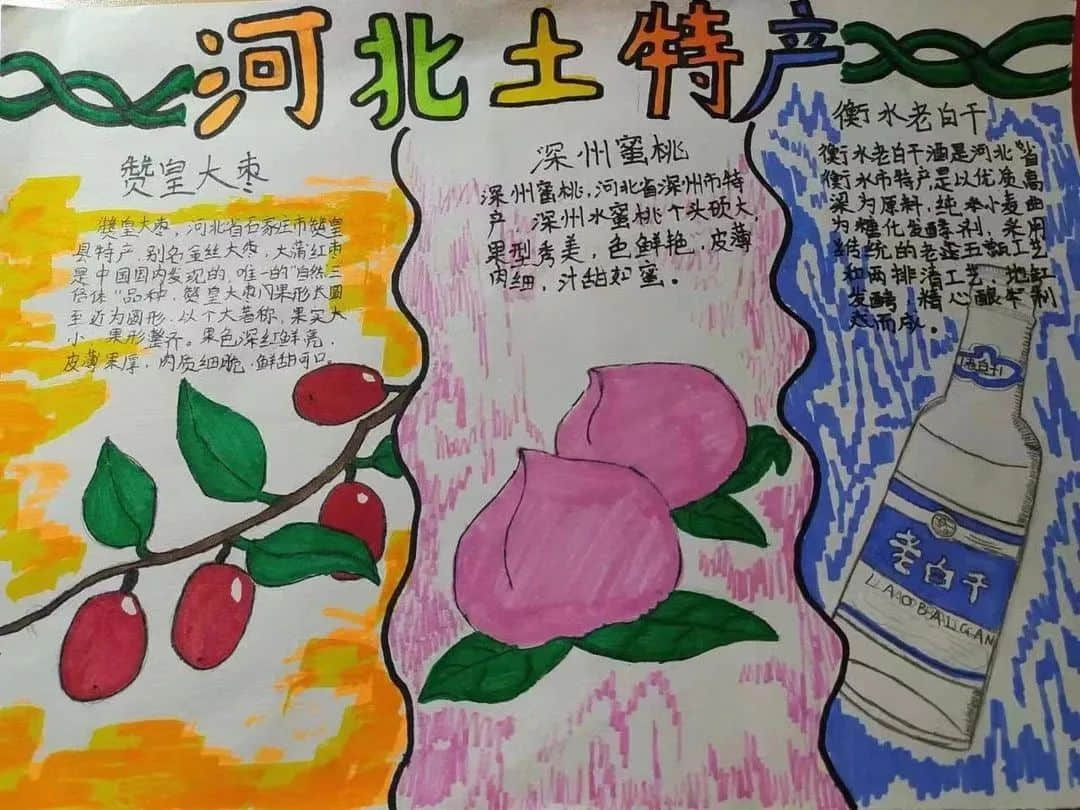 河北土特产
赞皇大枣
赞皇大枣，河北省石家庄市赞皇
县特产，别名金丝大枣，大蒲红枣
是中国国内发现的，唯一的"自然三
倍体"品种，赞皇大枣 果形长圆
至近为圆形，以个大著称，果实大
小，果形整齐。果色深红鲜亮，
皮薄果厚，肉质细脆，鲜甜可口。
深州蜜桃
深州蜜桃，河北省深州市特
产，深州水蜜桃个头硕大，
果型秀美，色鲜艳，皮薄
肉细，汁甜如蜜。
衡水老白干
衡水老白干酒是河北省
衡水市特产是以优质高
梁为原料，纯 小麦曲
为糖化发酵剂，采用
统的老五甑工艺
和两排清工艺，地缸
发酵，精心酿 制
而成。
老白干
老白干